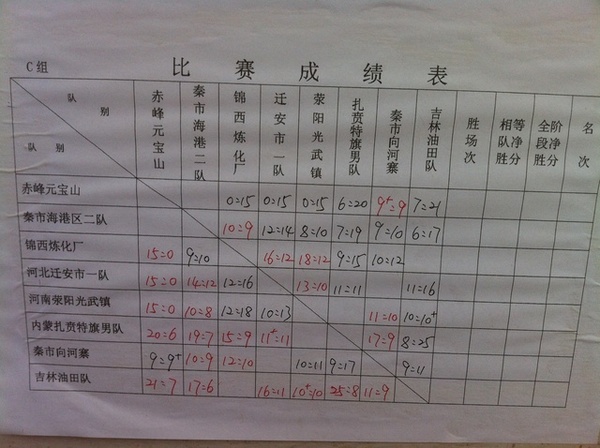 比赛成绩表
C组
队别 赤峰元宝山 秦市海港二队 锦西炼化厂 迁安市一队 荥阳光武镇 扎赉特旗男队 秦市向河寨 吉林油田队 胜场次 相等队净胜分 全阶段净胜分 名次
队别
赤峰元宝山 0=15 0=15 0=15 6=20 9⁺=9 7=21
秦市海港区二队 10=9 12=14 8=10 7=19 9=10 6=17
锦西炼化厂 15=0 9=10 16=12 18=12 9=15 10=12
河北迁安市一队 15=0 14=12 12=16 13=10 11=11 11=16
河南荥阳光武镇 15=0 10=8 12=18 10=13 11=10 10=10⁺
内蒙扎赉特旗男队 20=6 19=7 15=9 11⁺=11 17=9 8=25
秦市向河寨 9=9⁺ 10=9 12=10 10=11 9=17 9=11
吉林油田队 21=7 17=6 16=11 10⁺=10 25=8 11=9